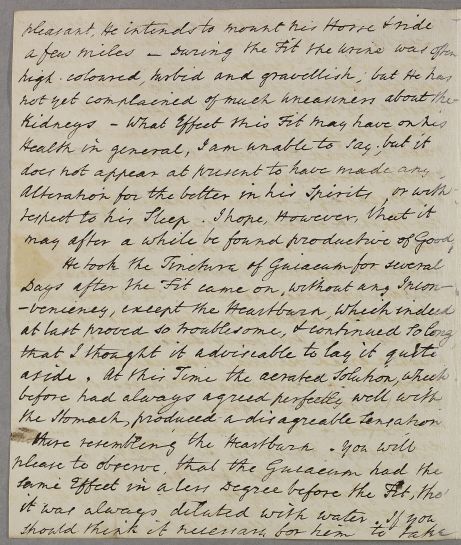 pleasant, He intends to mount his Horse & ride
a few miles — During the Fit the urine was often
high-coloured, turbid and gravellish; but He has
not yet complained of much uneasiness about the
Kidneys — What Effect this Fit may have on his
Health in general, I am unable to say, but it
does not appear at present to have made any
Alteration for the better in his Spirits, or with
respect to his Sleep. I hope, However, that it
may after a while be found productive of Good.
He took the Tinctura of Guiacum for several
Days after the Fit came on, without any Incon-
-veniency, except the Heartburn, which indeed
at last proved so troublesome, & continued so long
that I thought it adviseable to lay it quite
aside. At this Time the aerated Solution, which
before had always agreed perfectly well with
the Stomach, produced a disagreable Sensation
there resembling the Heartburn. You will
please to observe, that the Guiacum had the
same Effect in a less Degree before the Fit, tho'
it was always diluted with water. If you
should think it necessary for him to take